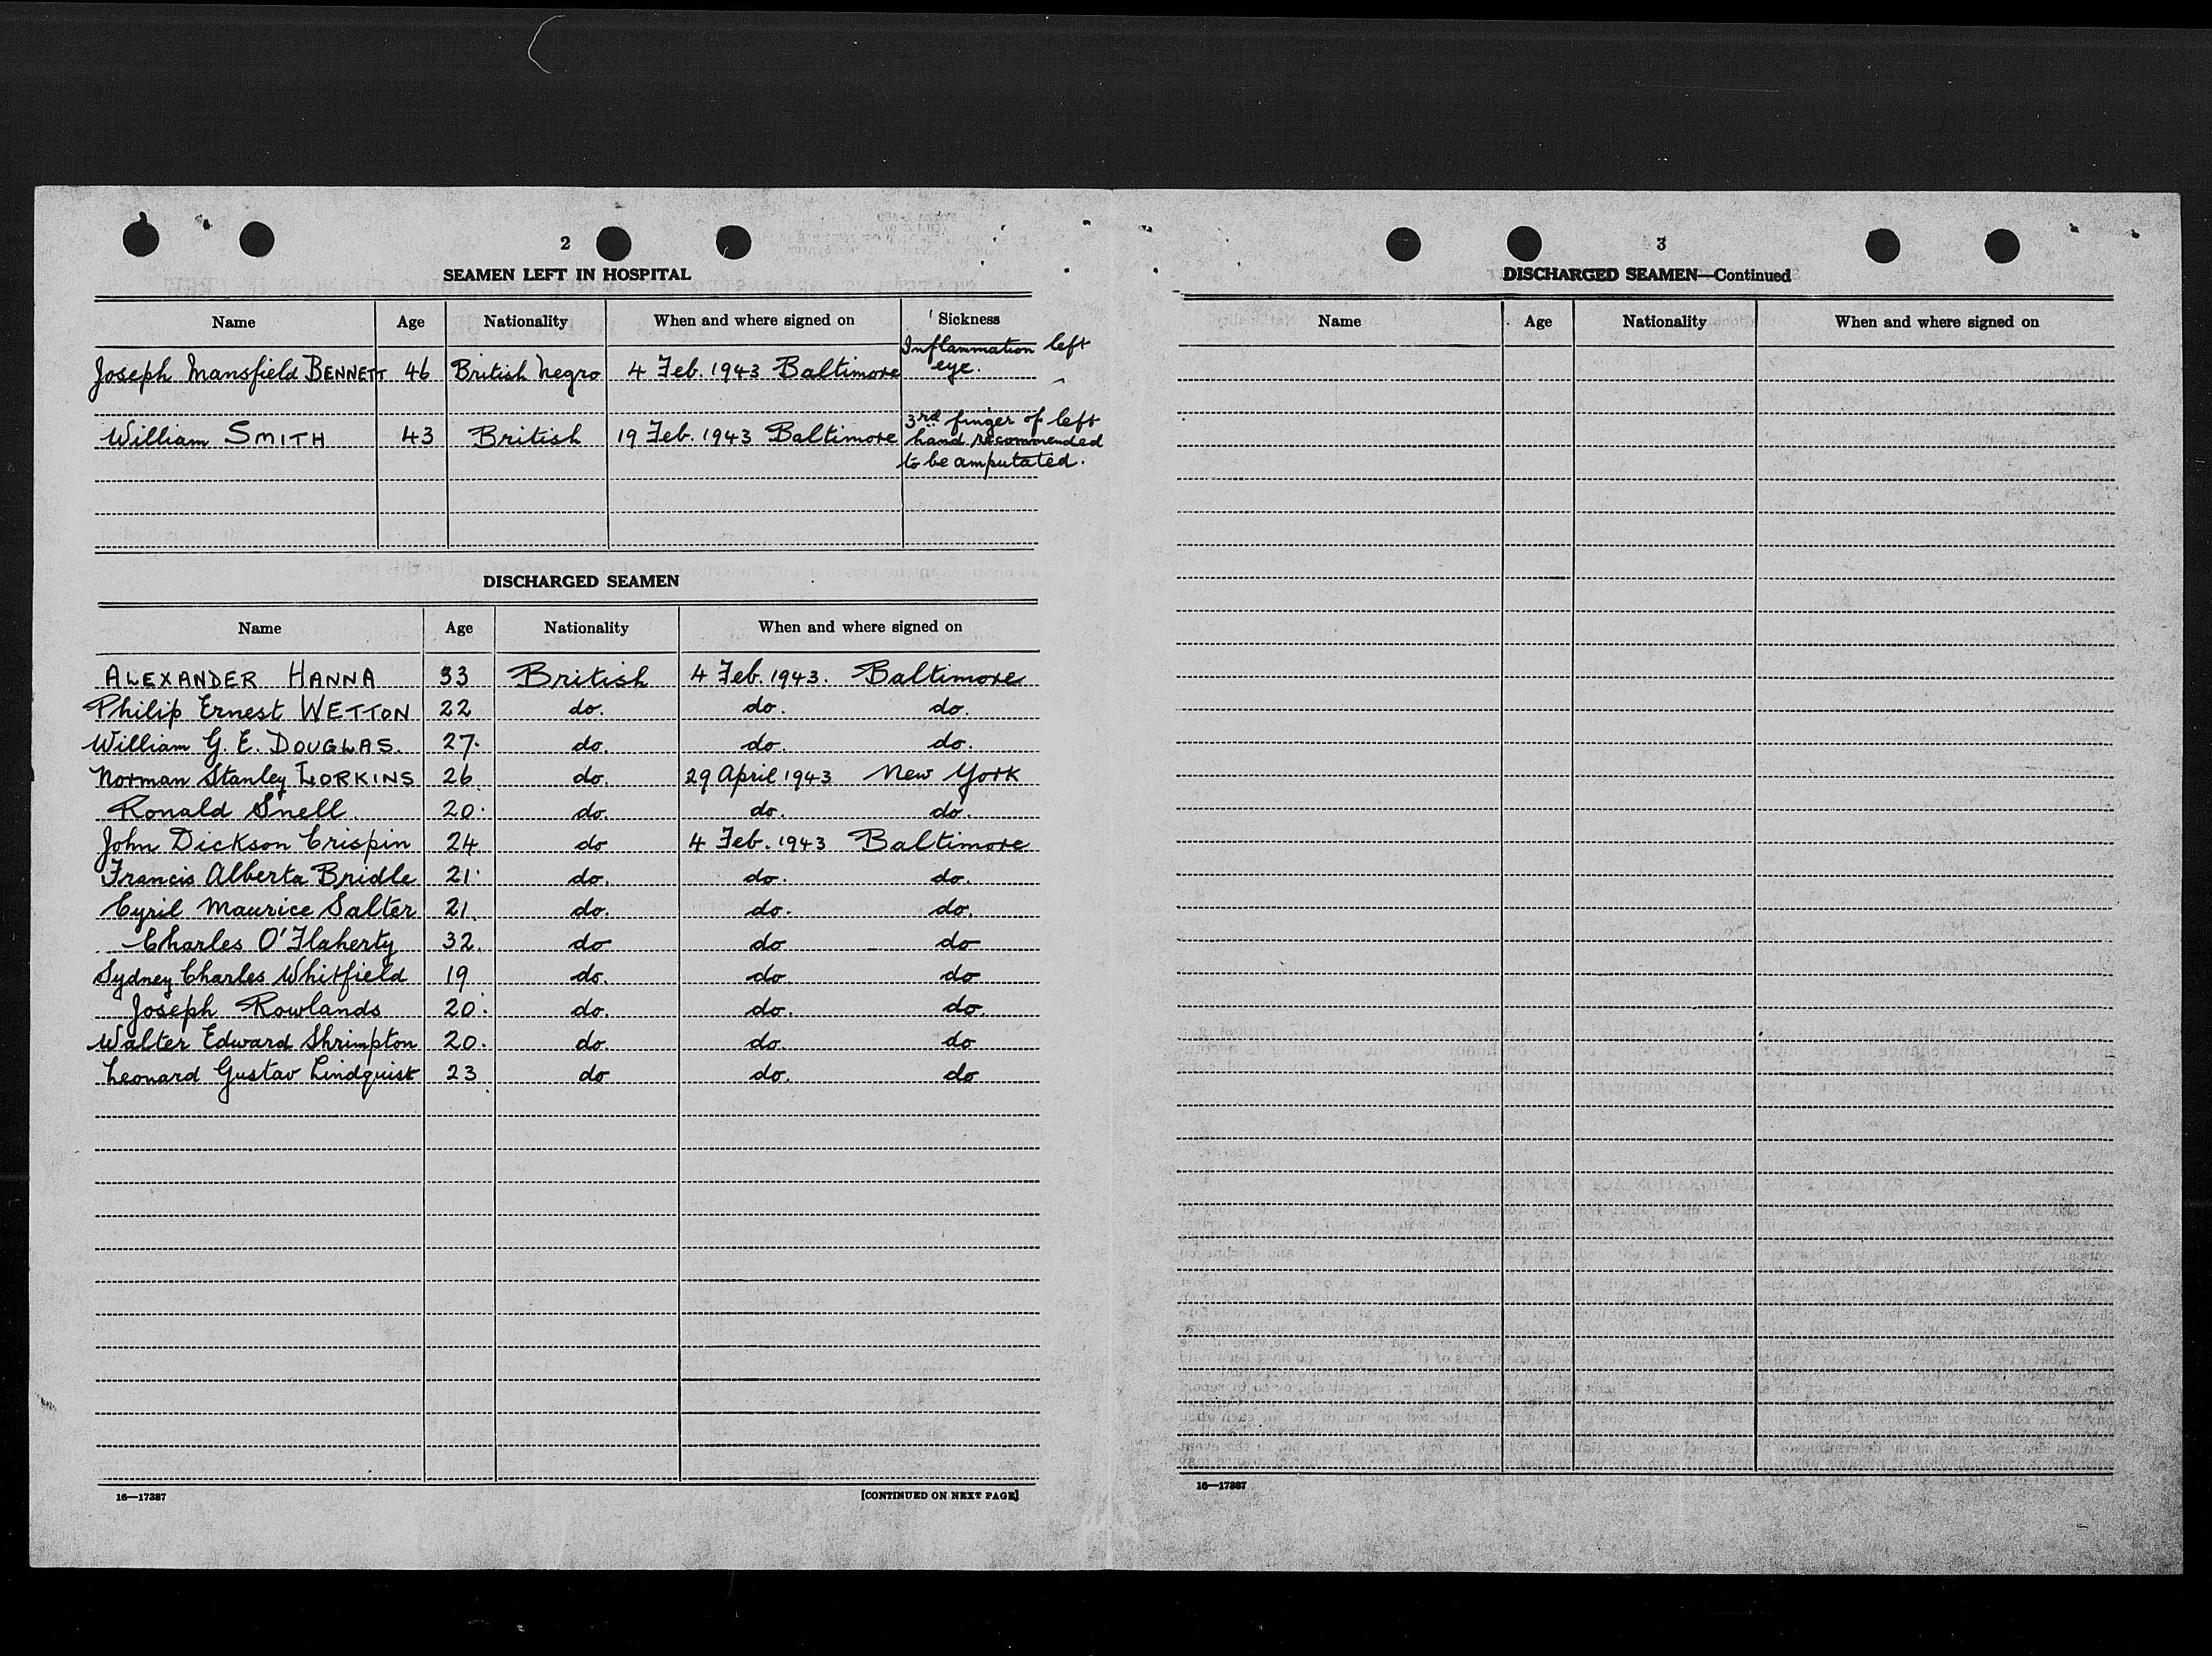 2
SEAMEN LEFT IN HOSPITAL
Name Age Nationality When and where signed on Sickness
Joseph Mansfield BENNETT 46 British Negro 4 Feb. 1943 Baltimore Inflammation left
eye.
William SMITH 43 British 19 Feb. 1943 Baltimore 3rd finger of left
hand recommended
to be amputated.
DISCHARGED SEAMEN
Name Age Nationality When and where signed on
ALEXANDER HANNA 33 British 4 Feb. 1943. Baltimore
Philip Ernest WETTON 22 do. do. do.
William G. E. DOUGLAS. 27. do. do. do.
Norman Stanley 26 do. 29 April 1943 New York
Ronald Snell. 20. do. do. do.
John Dickson Crispin 24 do 4 Feb. 1943 Baltimore
Francis Alberta Bridle 21. do. do. do.
Cyril Maurice Salter 21. do. do. do.
Charles O'Flaherty 32. do do do
Sydney Charles Whitfield 19 do. do. do
Joseph Rowlands 20. do. do. do.
Walter Edward Shrimpton 20. do. do. do
Leonard Gustav Lindquist 23 do do. do
16—17387 [CONTINUED ON NEXT PAGE]
3
DISCHARGED SEAMEN—Continued
Name Age Nationality When and where signed on
16—17387